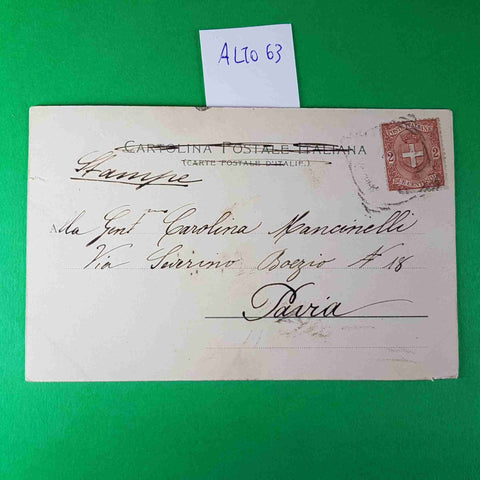 ALTO 63
CARTOLINA POSTALE ITALIANA
(CARTE POSTALE D'ITALIE)
Stampe
2 2
Alla Gent.ma Carolina Mancinelli
Via Severino Boezio N 18
Pavia